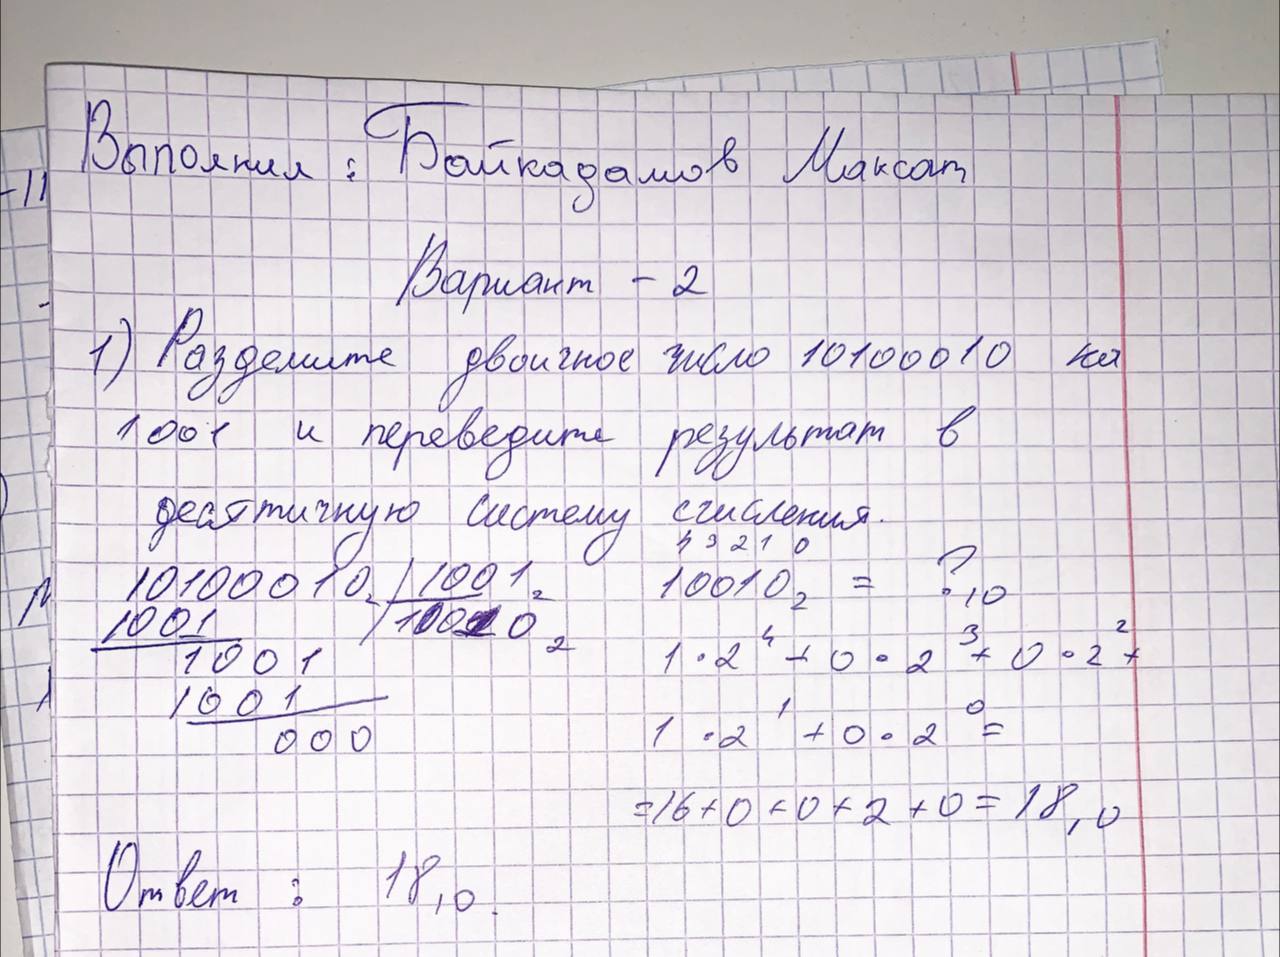 Выполнил : Байкадамов Максат
Вариант - 2
1) Разделите двоичное число 10100010 на
1001 и переведите результат в
десятичную систему счисления.
10100010₂ | 1001₂
1001 | 10010₂
1001
1001
000
4 3 2 1 0
10010₂ = ?₁₀
1·2⁴ + 0·2³ + 0·2² +
1·2¹ + 0·2⁰ =
=16+0+0+2+0=18₁₀
Ответ : 18₁₀.